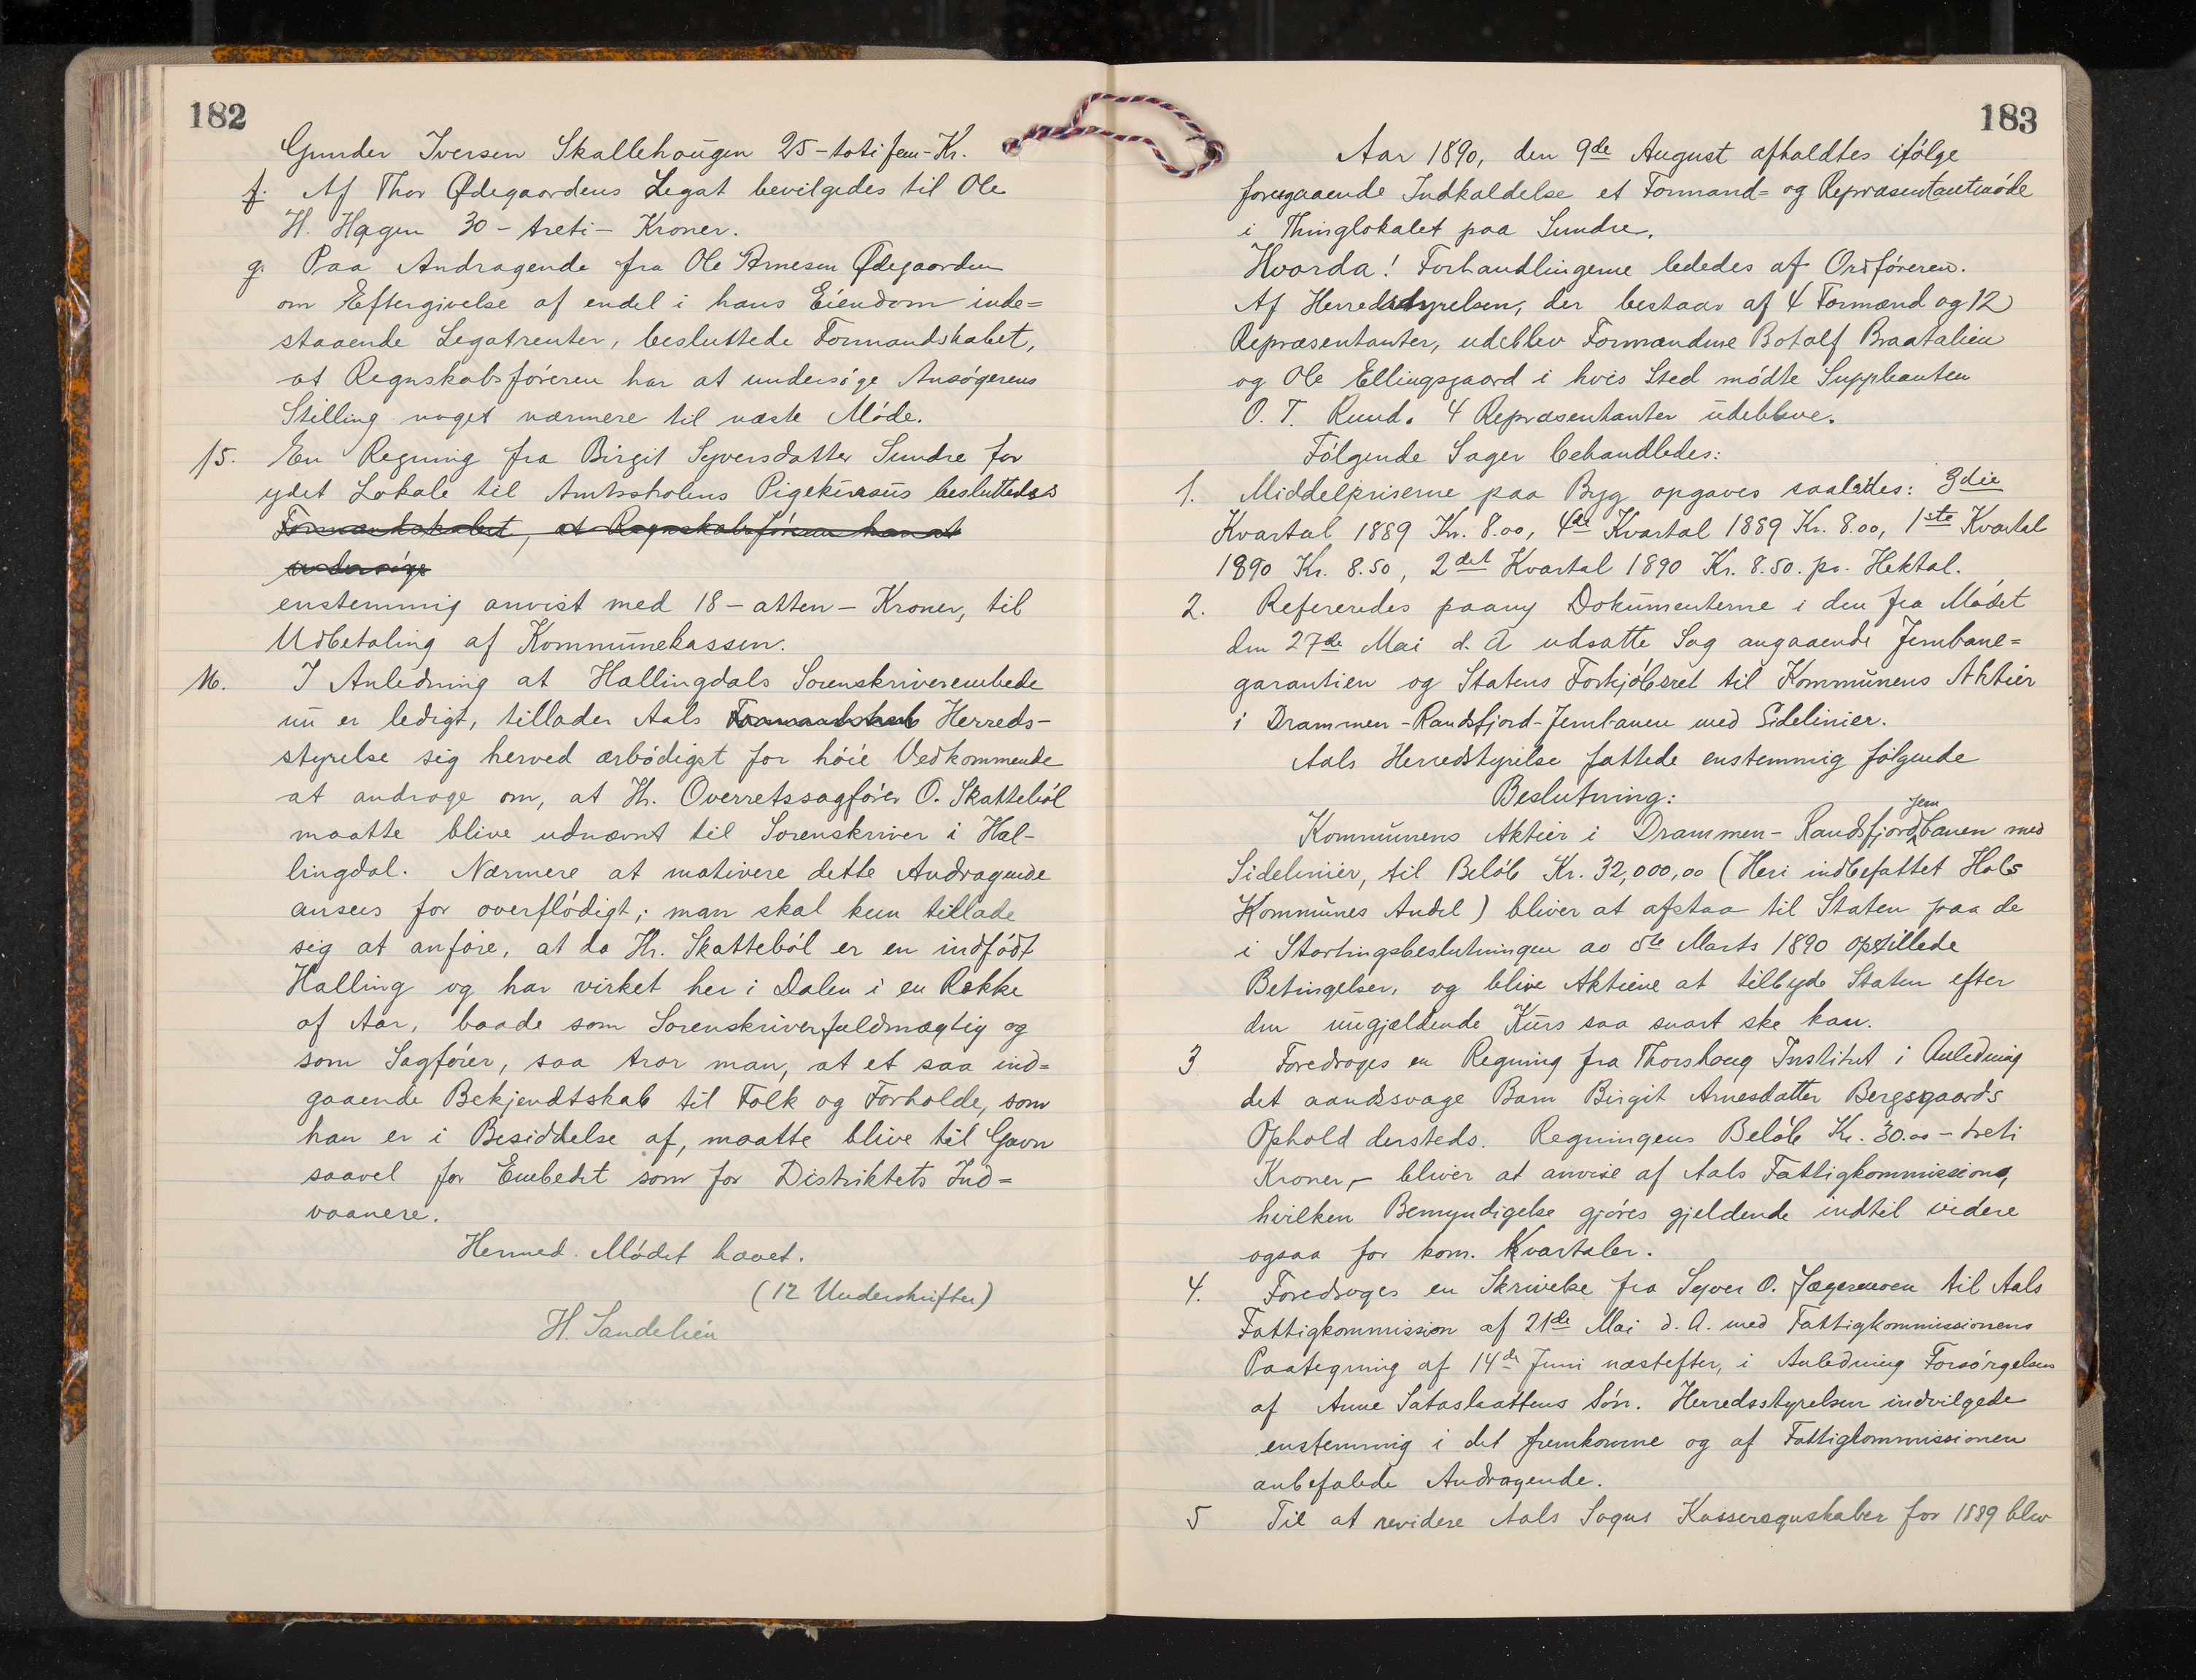 182
Gunder Iversen Skallehougen 25 - toti fem - Kr.
f. Af Thor Ødegaardens Legat bevilgedes til Ole
H. Hagen 30 - treti - Kroner.
g. Paa Andragende fra Ole Arnesen Ødegaarden
om Eftergivelse af endel i hans Eiendom inde=
staaende Legatrenter, besluttede Formandskabet,
at Regnskabsføreren har at undersøge Ansøgerens
Stilling noget nærmere til næste Møde.
15. En Regning fra Birgit Syversdatter Sundre for
ydet Lokale til Amtsskolens Pigekursus besluttedes
Formandskabet, at Regnskabsføreren har at
undersøge
enstemmig anvist med 18 - atten - Kroner, til
Udbetaling af Kommunekassen.
16. I Anledning at Hallingdals Sorenskriverembede
nu er ledigt, tillader Aals Formandskab Herreds-
styrelse sig herved ærbødigst for høie Vedkommende
at androge om, at Hr. Overretssagfører O. Skattebøl
maatte blive udnævnt til Sorenskriver i Hal-
lingdal. Nærmere at motivere dette Andragende
ansees for overflødigt; man skal kun tillade
sig at anføre, at da Hr. Skattebøl er en indfødt
Halling og har virket her i Dalen i en Række
af Aar, baade som Sorenskriverfuldmægtig og
som Sagfører, saa tror man, at et saa ind=
gaaende Bekjendtskab til Folk og Forholde, som
han er i Besiddelse af, maatte blive til Gavn
saavel for Embedet som for Distriktets Ind=
vaanere.
Hermed Mødet hævet.
(12 Underskrifter)
H. Sandelien
183
Aar 1890, den 9de August afholdtes ifølge
foregaaende Indkaldelse et Formand= og Repræsentantmøde
i Thinglokalet paa Sundre.
Hvorda! Forhandlingerne lededes af Ordføreren.
Af Herredsstyrelsen, der bestaar af 4 Formænd og 12
Repræsentanter, udeblev Formændene Botolf Braatalien
og Ole Ellingsgaard i hvis Sted mødte Suppleanten
O. T. Ruud. 4 Repræsentanter udebleve.
Følgende Sager behandledes:
1. Middelpriserne paa Byg opgaves saaledes: 3die
Kvartal 1889 Kr. 8.00, 4de Kvartal 1889 Kr. 8.00, 1ste Kvartal
1890 Kr. 8.50, 2det Kvartal 1890 Kr. 8.50. pr. Hektol.
2. Refereredes paany Dokumenterne i den fra Mødet
den 27de Mai d. A udsatte Sag angaaende Jernbane=
garantien og Statens Forkjøbsret til Kommunens Aktier
i Drammen - Randsfjord - Jernbanen med Sidelinier.
Aals Herredstyrelse fattede enstemmig følgende
Beslutning:
Kommunens Aktier i Drammen - Randsfjordjernbanen med
Sidelinier, til Beløb Kr. 32,000,00 (Heri indbefattet Hols
Kommunes Andel) bliver at afstaa til Staten paa de
i Stortingsbeslutningen av 5te Marts 1890 opstillede
Betingelser, og blive Aktierne at tilbyde Staten efter
den nugjældende Kurs saa snart ske kan.
3 Foredroges en Regning fra Thorshaug Institut i Anledning
det aandssvage Barn Birgit Arnesdatter Bergsgaards
Ophold dersteds. Regningens Beløb Kr. 30.00 - treti
Kroner, - bliver at anvise af Aals Fattigkommission,
hvilken Bemyndigelse gjøres gjeldende indtil videre
ogsaa for kom. Kvartaler.
4. Foredroges en Skrivelse fra Syver O. til Aals
Fattigkommission af 21de Mai d. A. med Fattigkommissionens
Paategning af 14de Juni næstefter, i Anledning Forsørgelsen
af Anne Sataslaattens Søn. Herredsstyrelsen indvilgede
enstemmig i det fremkomne og af Fattigkommissionen
anbefalede Andragende.
5 Til at revidere Aals Sogns Kasseregnskaber for 1889 blev